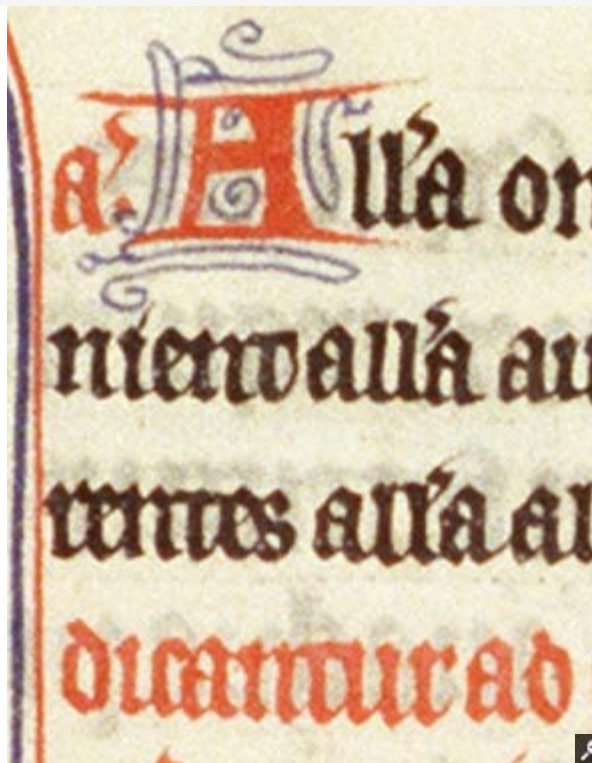 a᷒. All'a on
niend all'a au
rentes all'a al
dicantur ad